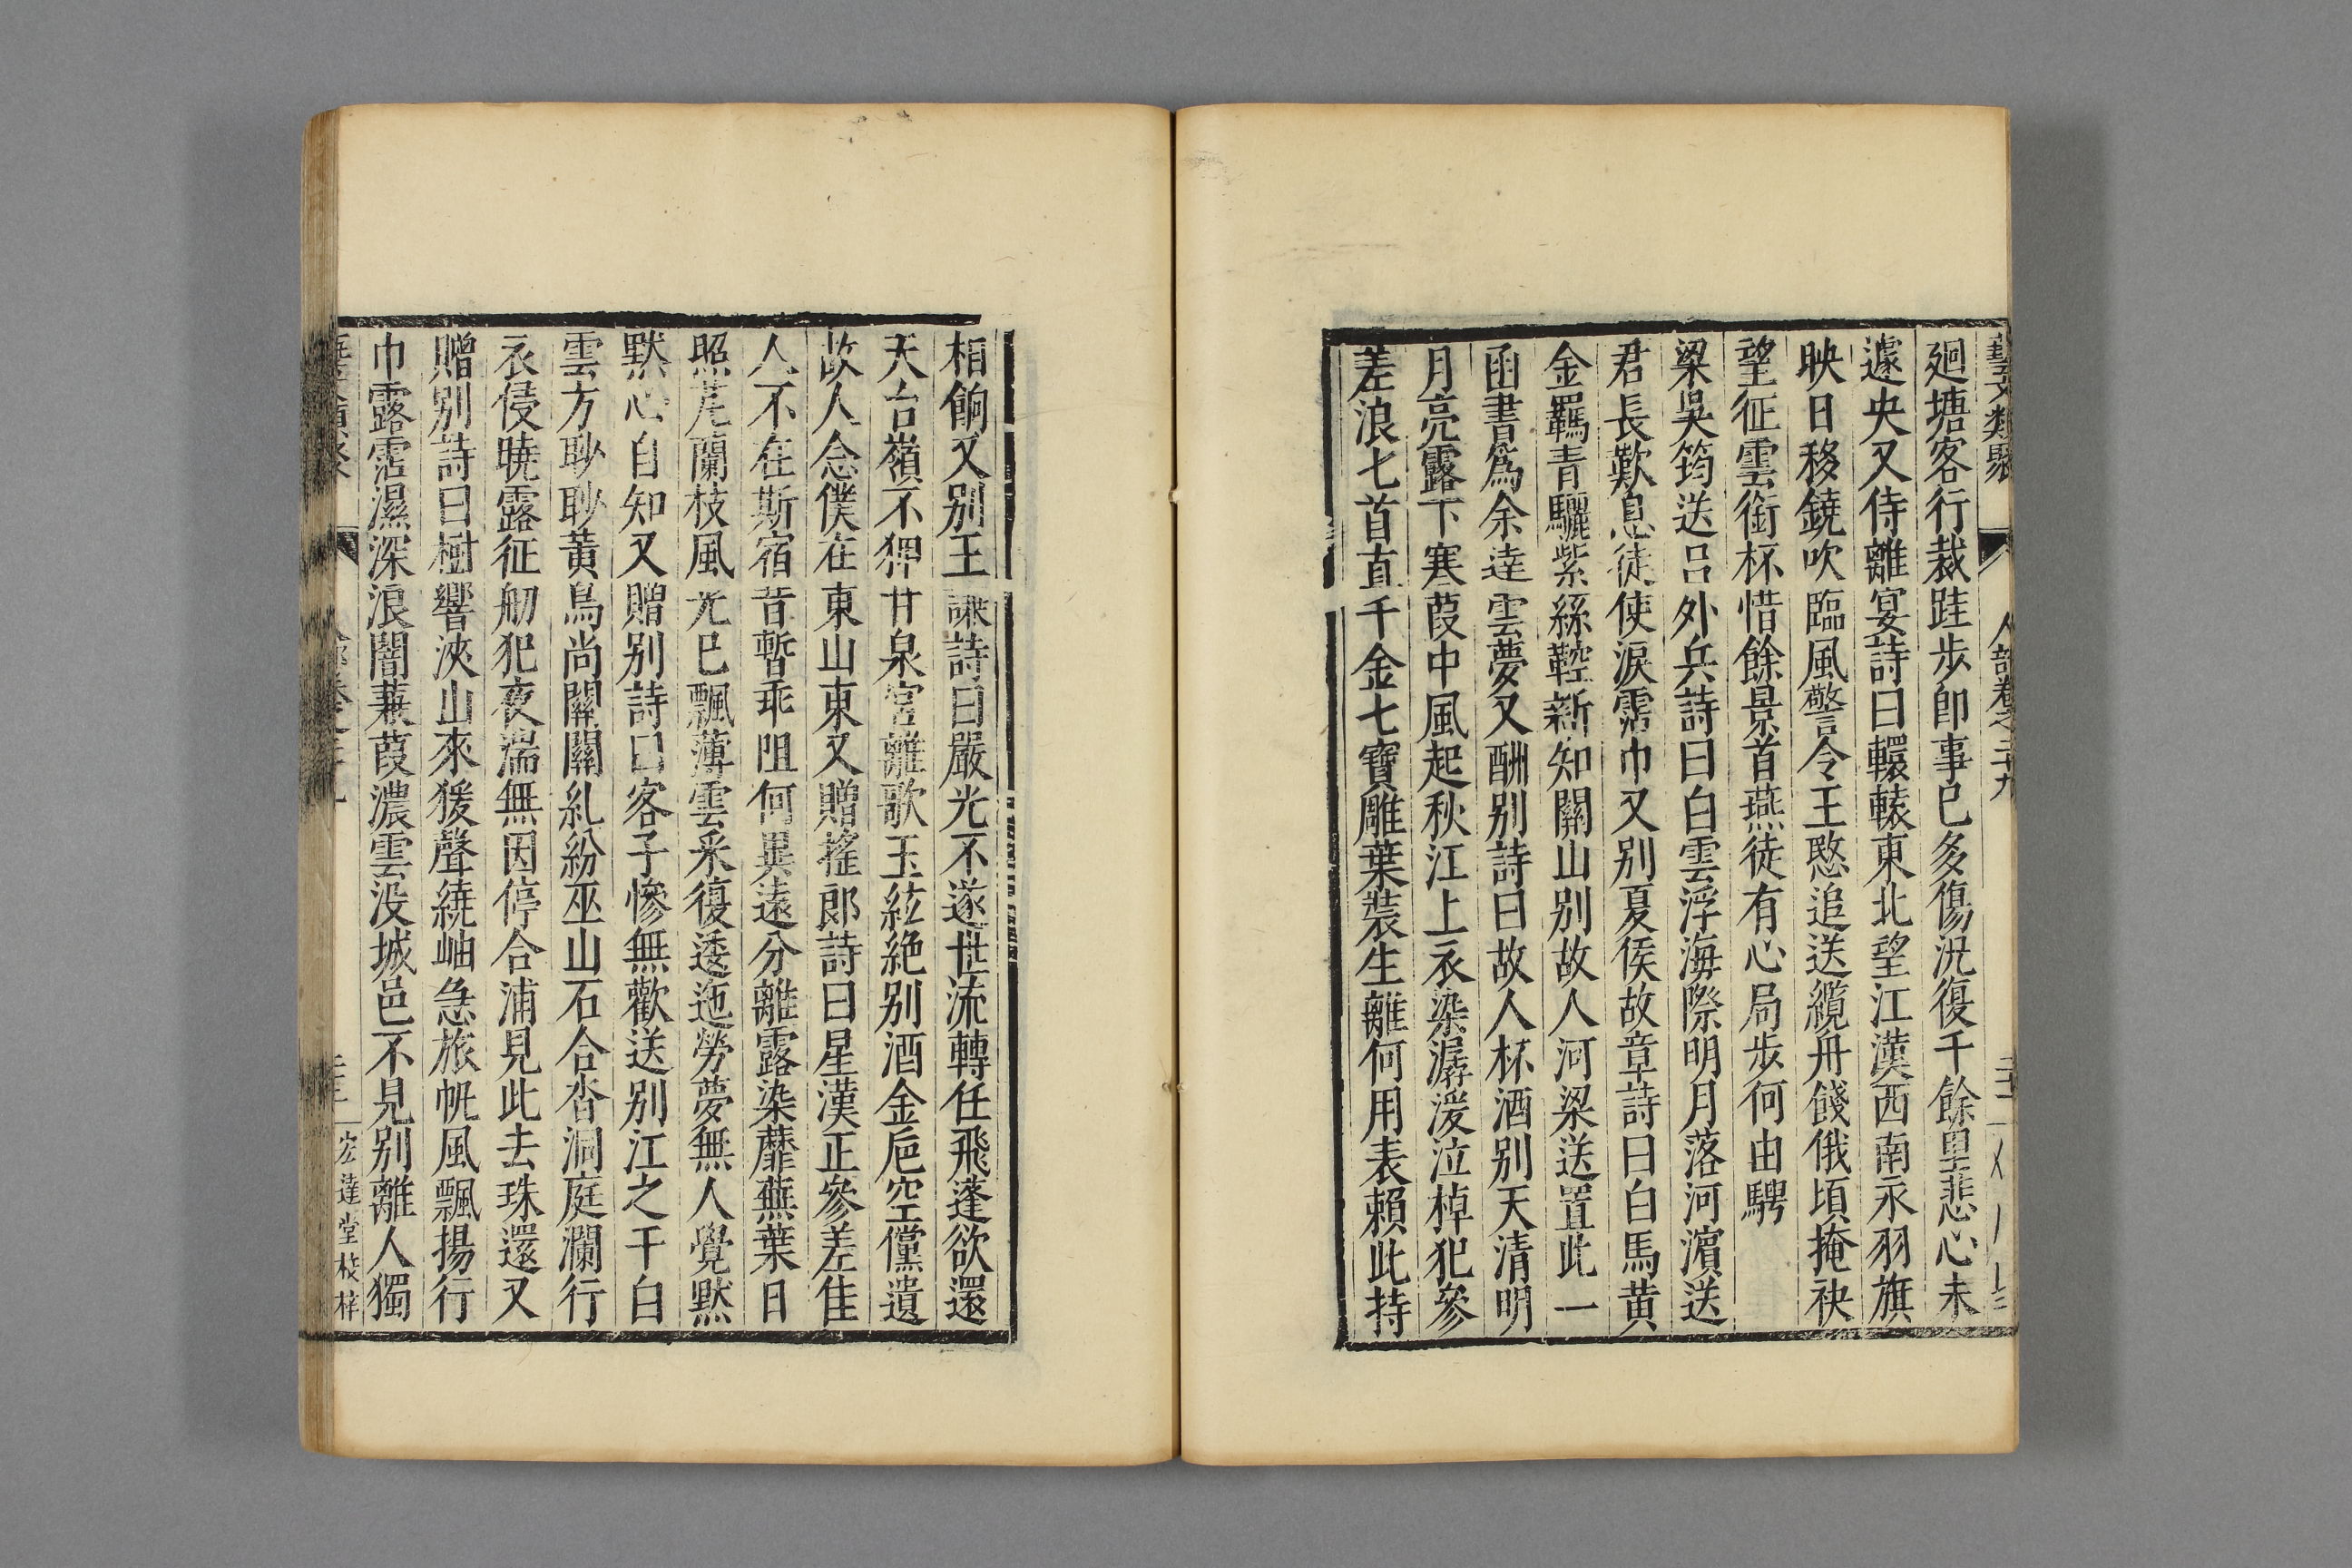 藝文類聚 人部卷之二十九
廻塘客行裁跬步即事已多傷況復千餘里悲心未
遽央又侍離宴詩曰轘轅東北望江漢西南永羽旗
映日移鐃吹臨風警令王愍追送纜舟餞俄頃掩袂
望征雲銜杯惜餘景首燕徒有心局步何由騁
梁吳筠送呂外兵詩曰白雲浮海際明月落河濵送
君長歎息徒使淚霑巾又别夏侯故章詩曰白馬黃
金羈青驪紫絲鞚新知關山别故人河梁送置此一
函書爲余逹雲夢又酬别詩曰故人杯酒别天清明
月亮露下寒葭中風起秋江上衣染潺湲泣棹犯參
差浪七首直千金七寶雕葉裝生離何用表賴此持
相餉又别王謙詩曰嚴光不遂世流轉任飛蓬欲還
天台嶺不狎甘泉宮離歌玉絃絶别酒金巵空儻遺
故人念僕在東山東又贈搖郎詩曰星漢正參差佳
人不在斯宿昔暫乖阻何異遠分離露染蘼蕪葉日
照茝蘭枝風光已飄薄雲采復逶迤勞夢無人覺默
默心自知又贈别詩曰客子慘無歡送别江之干白
雲方眇眇黃鳥尚關關糺紛巫山石合沓洞庭瀾行
衣侵曉露征舠犯夜湍無因停合浦見此去珠還又
贈别詩曰樹響浹山來猨聲繞岫急旅帆風飄揚行
巾露霑濕深浪闇蒹葭濃雲没城邑不見别離人獨
宏達堂校梓